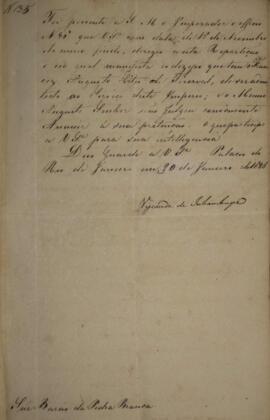 Foi presente a S. M. o Imperador o officio
N.º 8 que V. S.ª com data de 15 de Novembro
do anno findo, dirigio a esta Repartição
e no qual manifesta o dezejo que tem
Augusto de ser admit-
tido ao Serviço deste Imperio; e o Mesmo
Augusto Senhor não julgou conveniente
Annuir à sua pretenção. O que participo
a V. S.ª para sua intelligencia.
Deos Guarde a V. S.ª Palacio do
Rio de Janeiro em 20 de Janeiro de
Visconde de Inhambupe
Snr. Barão da Pedra Branca